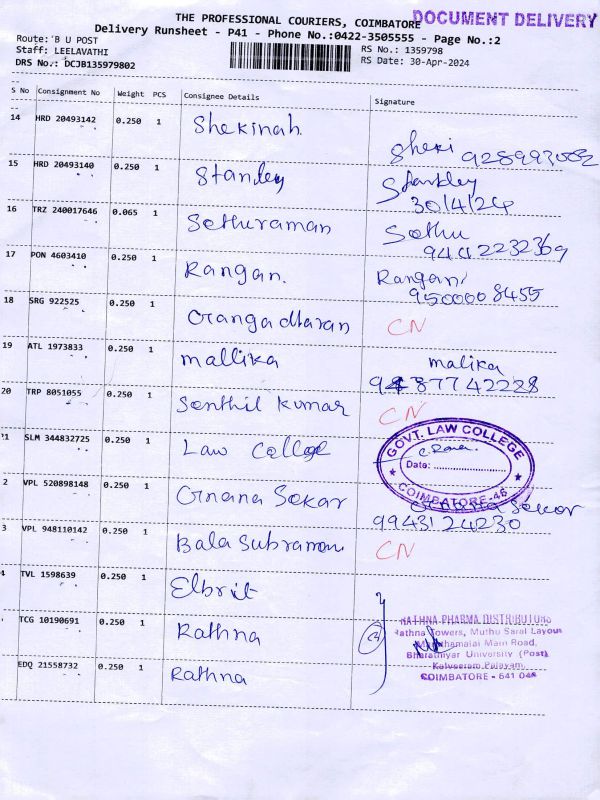 THE PROFESSIONAL COURIERS, COIMBATORE DOCUMENT DELIVERY
Delivery Runsheet - P41 - Phone No.:0422-3505555 - Page No.:2
Route: B U POST
Staff: LEELAVATHI
DRS No.: DCJB135979802
RS No.: 1359798
RS Date: 30-Apr-2024
S No Consignment No Weight PCS Consignee Details Signature
14 HRD 20493142 0.250 1 Shekinah
Sheki
15 HRD 20493140 0.250 1 Stanley
Stanley
30/4/24
16 TRZ 240017646 0.065 1 Sethuraman
Sethu
17 PON 4603410 0.250 1 Rangan.
Rangan
9500008455
18 SRG 922525 0.250 1 Grangadharan CN
19 ATL 1973833 0.250 1 mallika
malika
77 42228
20 TRP 8051055 0.250 1 Senthil Kumar CN
21 SLM 344832725 0.250 1 Law College
GOVT. LAW COLLEGE
Date:
COIMBATORE-46
2 VPL 520898148 0.250 1 Gnana Sekar
Sekar
9943124230
3 VPL 948110142 0.250 1 Bala Subraman CN
4 TVL 1598639 0.250 1 Elbrit
TCG 10190691 0.250 1 Rathna
EDQ 21558732 0.250 1 Rathna
RATHNA PHARMA DISTRIBUTORS
Rathna Towers, Muthu Saral Layout
Maruthamalai Main Road,
Bharathiyar University (Post)
Kalveeram Palayam,
COIMBATORE - 641 046